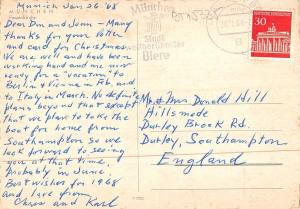 Munich Jan 26 '68
MÜNCHEN
Dear Don and Jean - Many
thanks for your letter
and card for Christmas.
We are well and have been
working hard and are now
ready for a "vacation" to
Berlin & Vienna in Feb. and
to Italy in March. No definite
plans beyond that except
that we plan to take the
boat for home from
Southampton so we
look forward to seeing
you at that time,
Probably in June.
Best wishes for 1968
and love from
Chris and Karl
München
Stadt
weltberühmter
Biere
30
Mr. & Mrs Donald Hill
Hillsmede
Durley Brook Rd.
Durley, Southampton
England